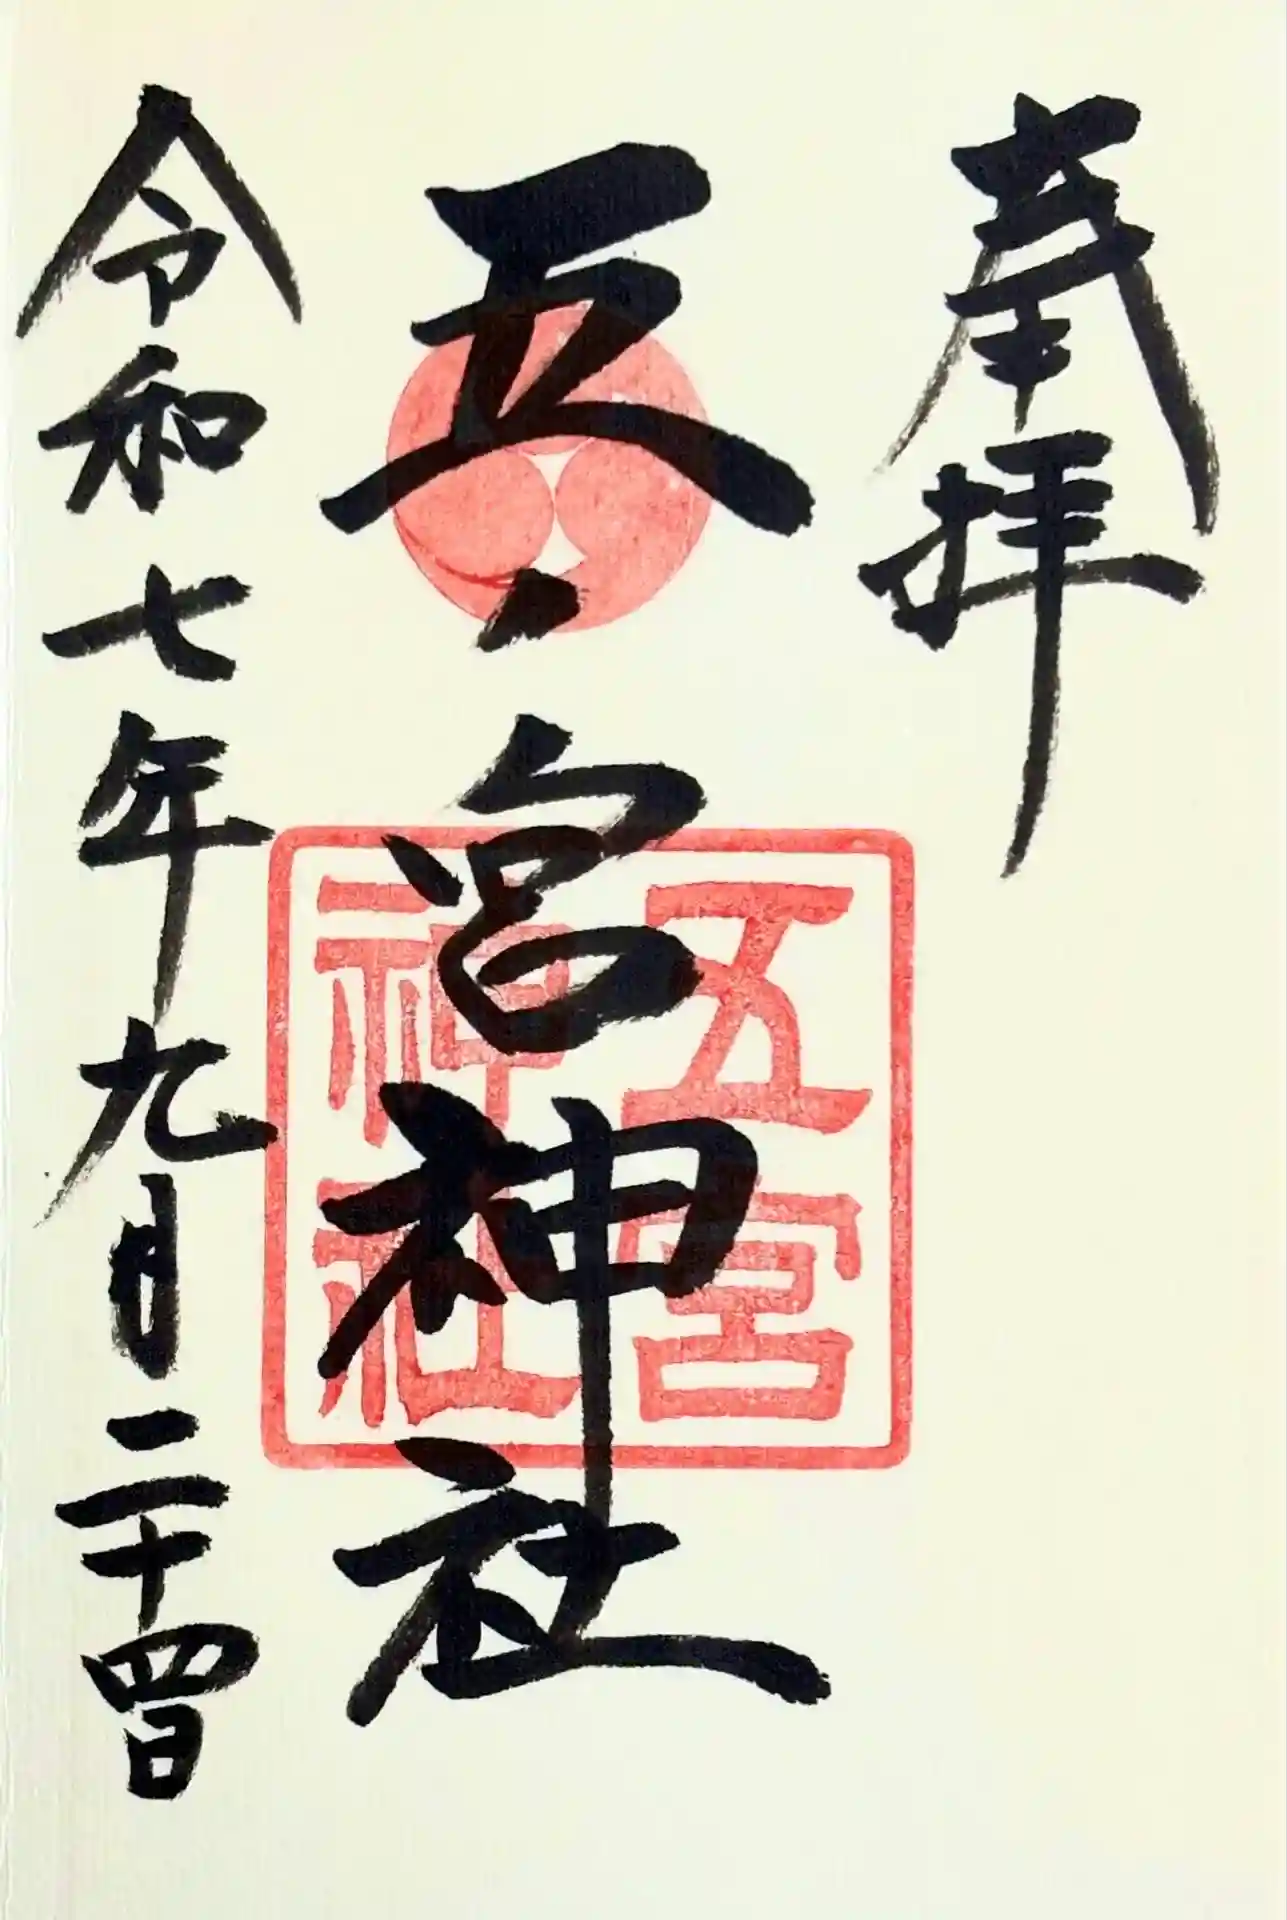 奉拝
五ノ宮神社
五宮
神社
令和七年九月二十四日